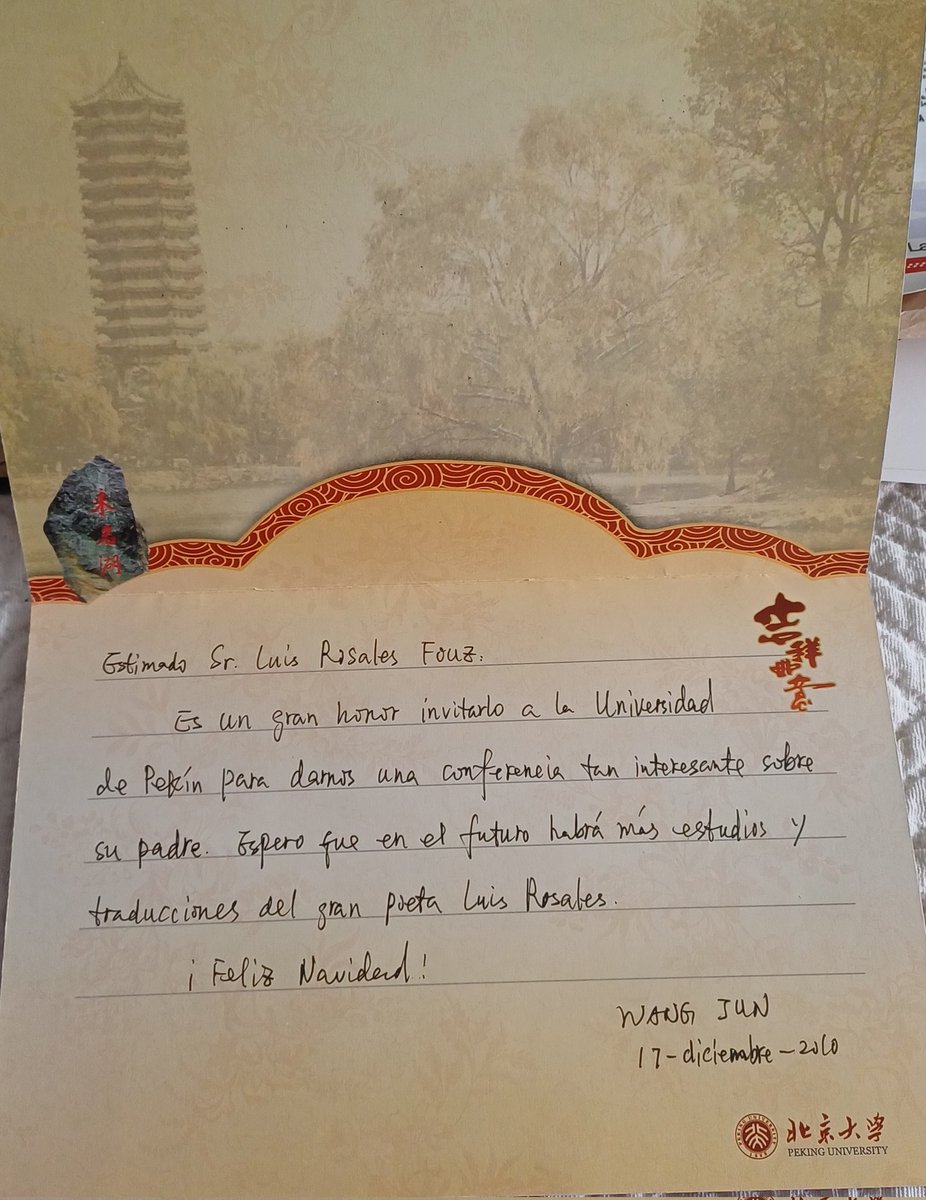 未名湖
吉祥如意
Estimado Sr. Luis Rosales Fouz:
Es un gran honor invitarlo a la Universidad
de Pekín para darnos una conferencia tan interesante sobre
su padre. Espero que en el futuro habrá más estudios y
traducciones del gran poeta Luis Rosales.
¡Feliz Navidad!
WANG JUN
17-diciembre-2010
北京大学
PEKING UNIVERSITY